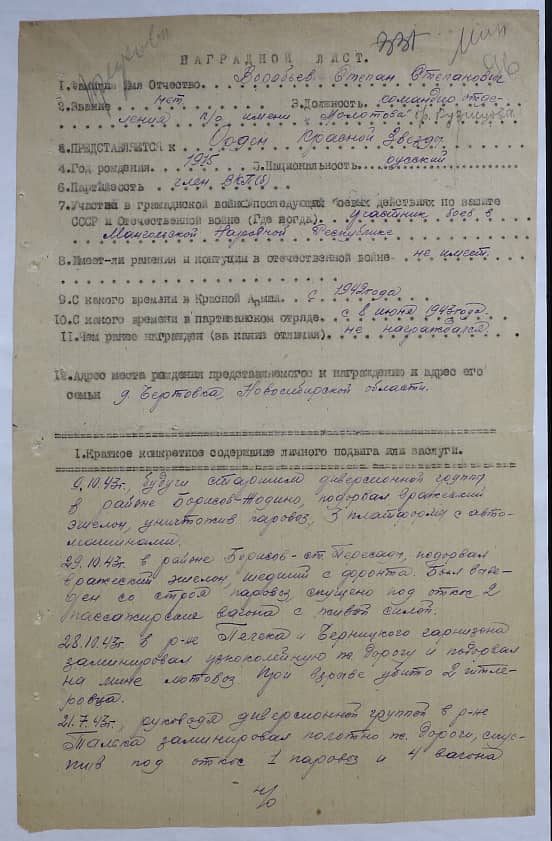 337
Н А Г Р А Д Н О Й   Л И С Т.
1.Фамилия Имя Отчество. Воробьев Степан Степанович
2.Звание нет 3.Должность командир отде-
ления п/о имени Молотова бр. Кузнецова
3.ПРЕДСТАВЛЯЕТСЯ к Орден Красной Звезды
4.Год рождения. 1915 5.Национальность русский
6.Партийность член ВКП(б)
7.Участие в гражданской войне последующих боевых действиях по защите
СССР и Отечественной войне (Где когда). участник боев в
Монгольской Народной Республике
8.Имеет-ли ранения и контузии в отечественной войне не имеет.
9.С какого времени в Красной Армии. с 1942 года
10.С какого времени в партизанском отряде. с 8 июня 1943 года.
11.Чем ранее награжден (за какие отличия). не награждался
12.Адрес места рождения представляемого к награждению и адрес его
семьи д. Бертовка Новосибирской области.
1.Краткое конкретное содержание личного подвига или заслуги.
9.10.43г., будучи старшим диверсионной группы
в районе Борисов-Жодино, подорвал вражеский
эшелон, уничтожив паровоз, 3 платформы с авто-
машинами.
29.10.43г. в районе Борисов - ст. Пересады, подорвал
вражеский эшелон, шедший с фронта. Был выве-
ден со строя паровоз, спущено под откос 2
пассажирских вагона с живой силой.
28.10.43г. в р-не и гарнизона
заминировал узкоколейную ж. дорогу и подорвал
на мине мотовоз. При взрыве убито 2 гитле-
ровца.
21.7.43г., руководя диверсионной группой в р-не
Талька заминировал полотно ж. дороги, спус-
тив под откос 1 паровоз и 4 вагона